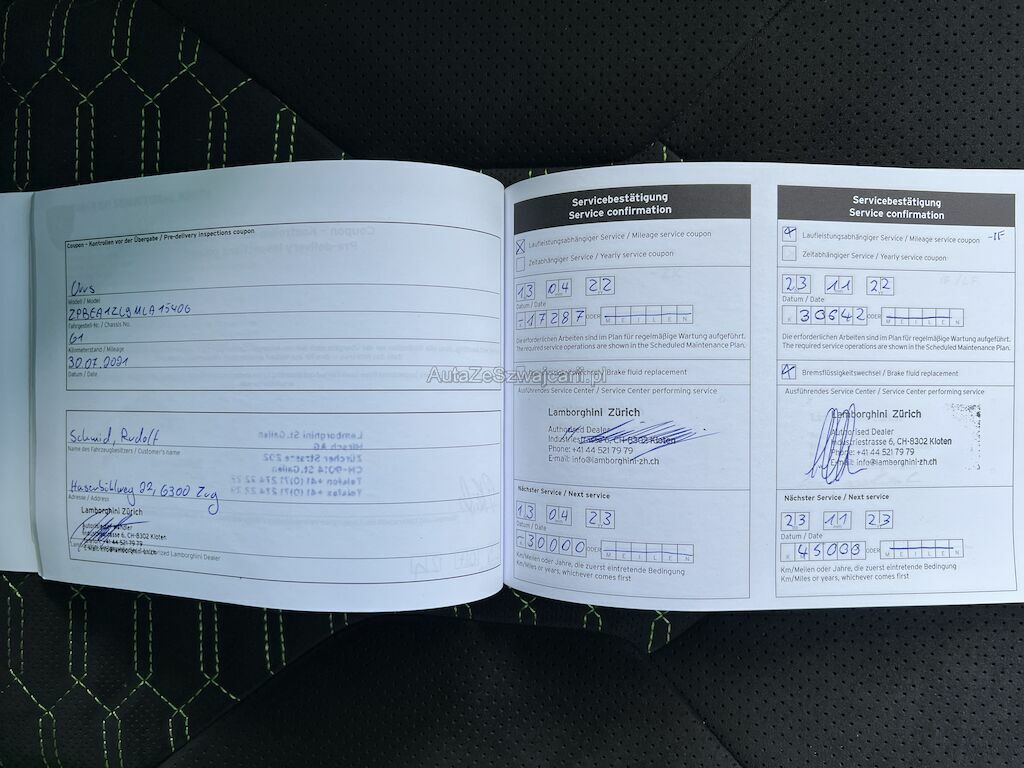 Coupon - Kontrollen vor der Übergabe / Pre-delivery inspections coupon
Urus
Modell / Model
ZPBEA1ZL9MLA15406
Fahrgestell-Nr. / Chassis No.
61
Kilometerstand / Mileage
30.07.2021
Datum / Date
Schmid, Rudolf
Name des Fahrzeugbesitzers / Customer's name
22, 6300 Zug
Adresse / Address
Lamborghini Zürich
Industriestrasse 6, CH-8302 Kloten
Lamborghini Dealer
Servicebestätigung
Service confirmation
Laufleistungsabhängiger Service / Mileage service coupon
Zeitabhängiger Service / Yearly service coupon
13 04 22
Datum / Date
17287 ODER MEILEN
Die erforderlichen Arbeiten sind im Plan für regelmäßige Wartung aufgeführt.
The required service operations are shown in the Scheduled Maintenance Plan.
Brake fluid replacement
Ausführendes Service Center / Service Center performing service
Lamborghini Zürich
Authorised Dealer
Industriestrasse 6, CH-8302 Kloten
Phone: +41 44 521 79 79
E-mail: info@lamborghini-zh.ch
Nächster Service / Next service
13 04 23
Datum / Date
30000 ODER MEILEN
Km/Meilen oder Jahre, die zuerst eintretende Bedingung
Km/Miles or years, whichever comes first
Servicebestätigung
Service confirmation
Laufleistungsabhängiger Service / Mileage service coupon
Zeitabhängiger Service / Yearly service coupon
23 11 22
Datum / Date
30642 ODER MEILEN
Die erforderlichen Arbeiten sind im Plan für regelmäßige Wartung aufgeführt.
The required service operations are shown in the Scheduled Maintenance Plan.
Bremsflüssigkeitswechsel / Brake fluid replacement
Ausführendes Service Center / Service Center performing service
Lamborghini Zürich
Authorised Dealer
Industriestrasse 6, CH-8302 Kloten
Phone: +41 44 521 79 79
E-mail: info@lamborghini-zh.ch
Nächster Service / Next service
23 11 23
Datum / Date
45000 ODER MEILEN
Km/Meilen oder Jahre, die zuerst eintretende Bedingung
Km/Miles or years, whichever comes first
AutaZeSzwajcarii.pl